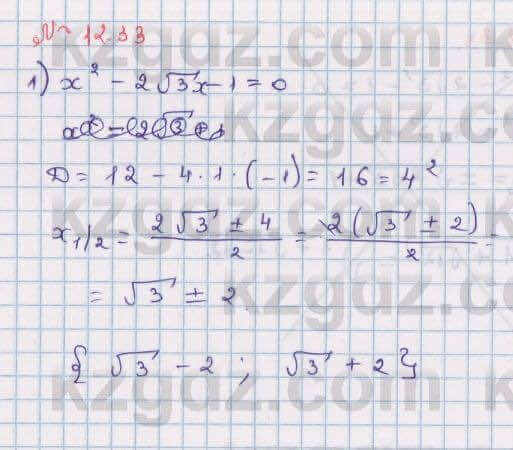 № 12.33
1) x² - 2√3x - 1 = 0
D = 12 - 4·1·(-1) = 16 = 4²
x₁/₂ = (2√3 ± 4)/2 = 2(√3 ± 2)/2 =
= √3 ± 2
{ √3 - 2 ; √3 + 2 }
kzgdz.com